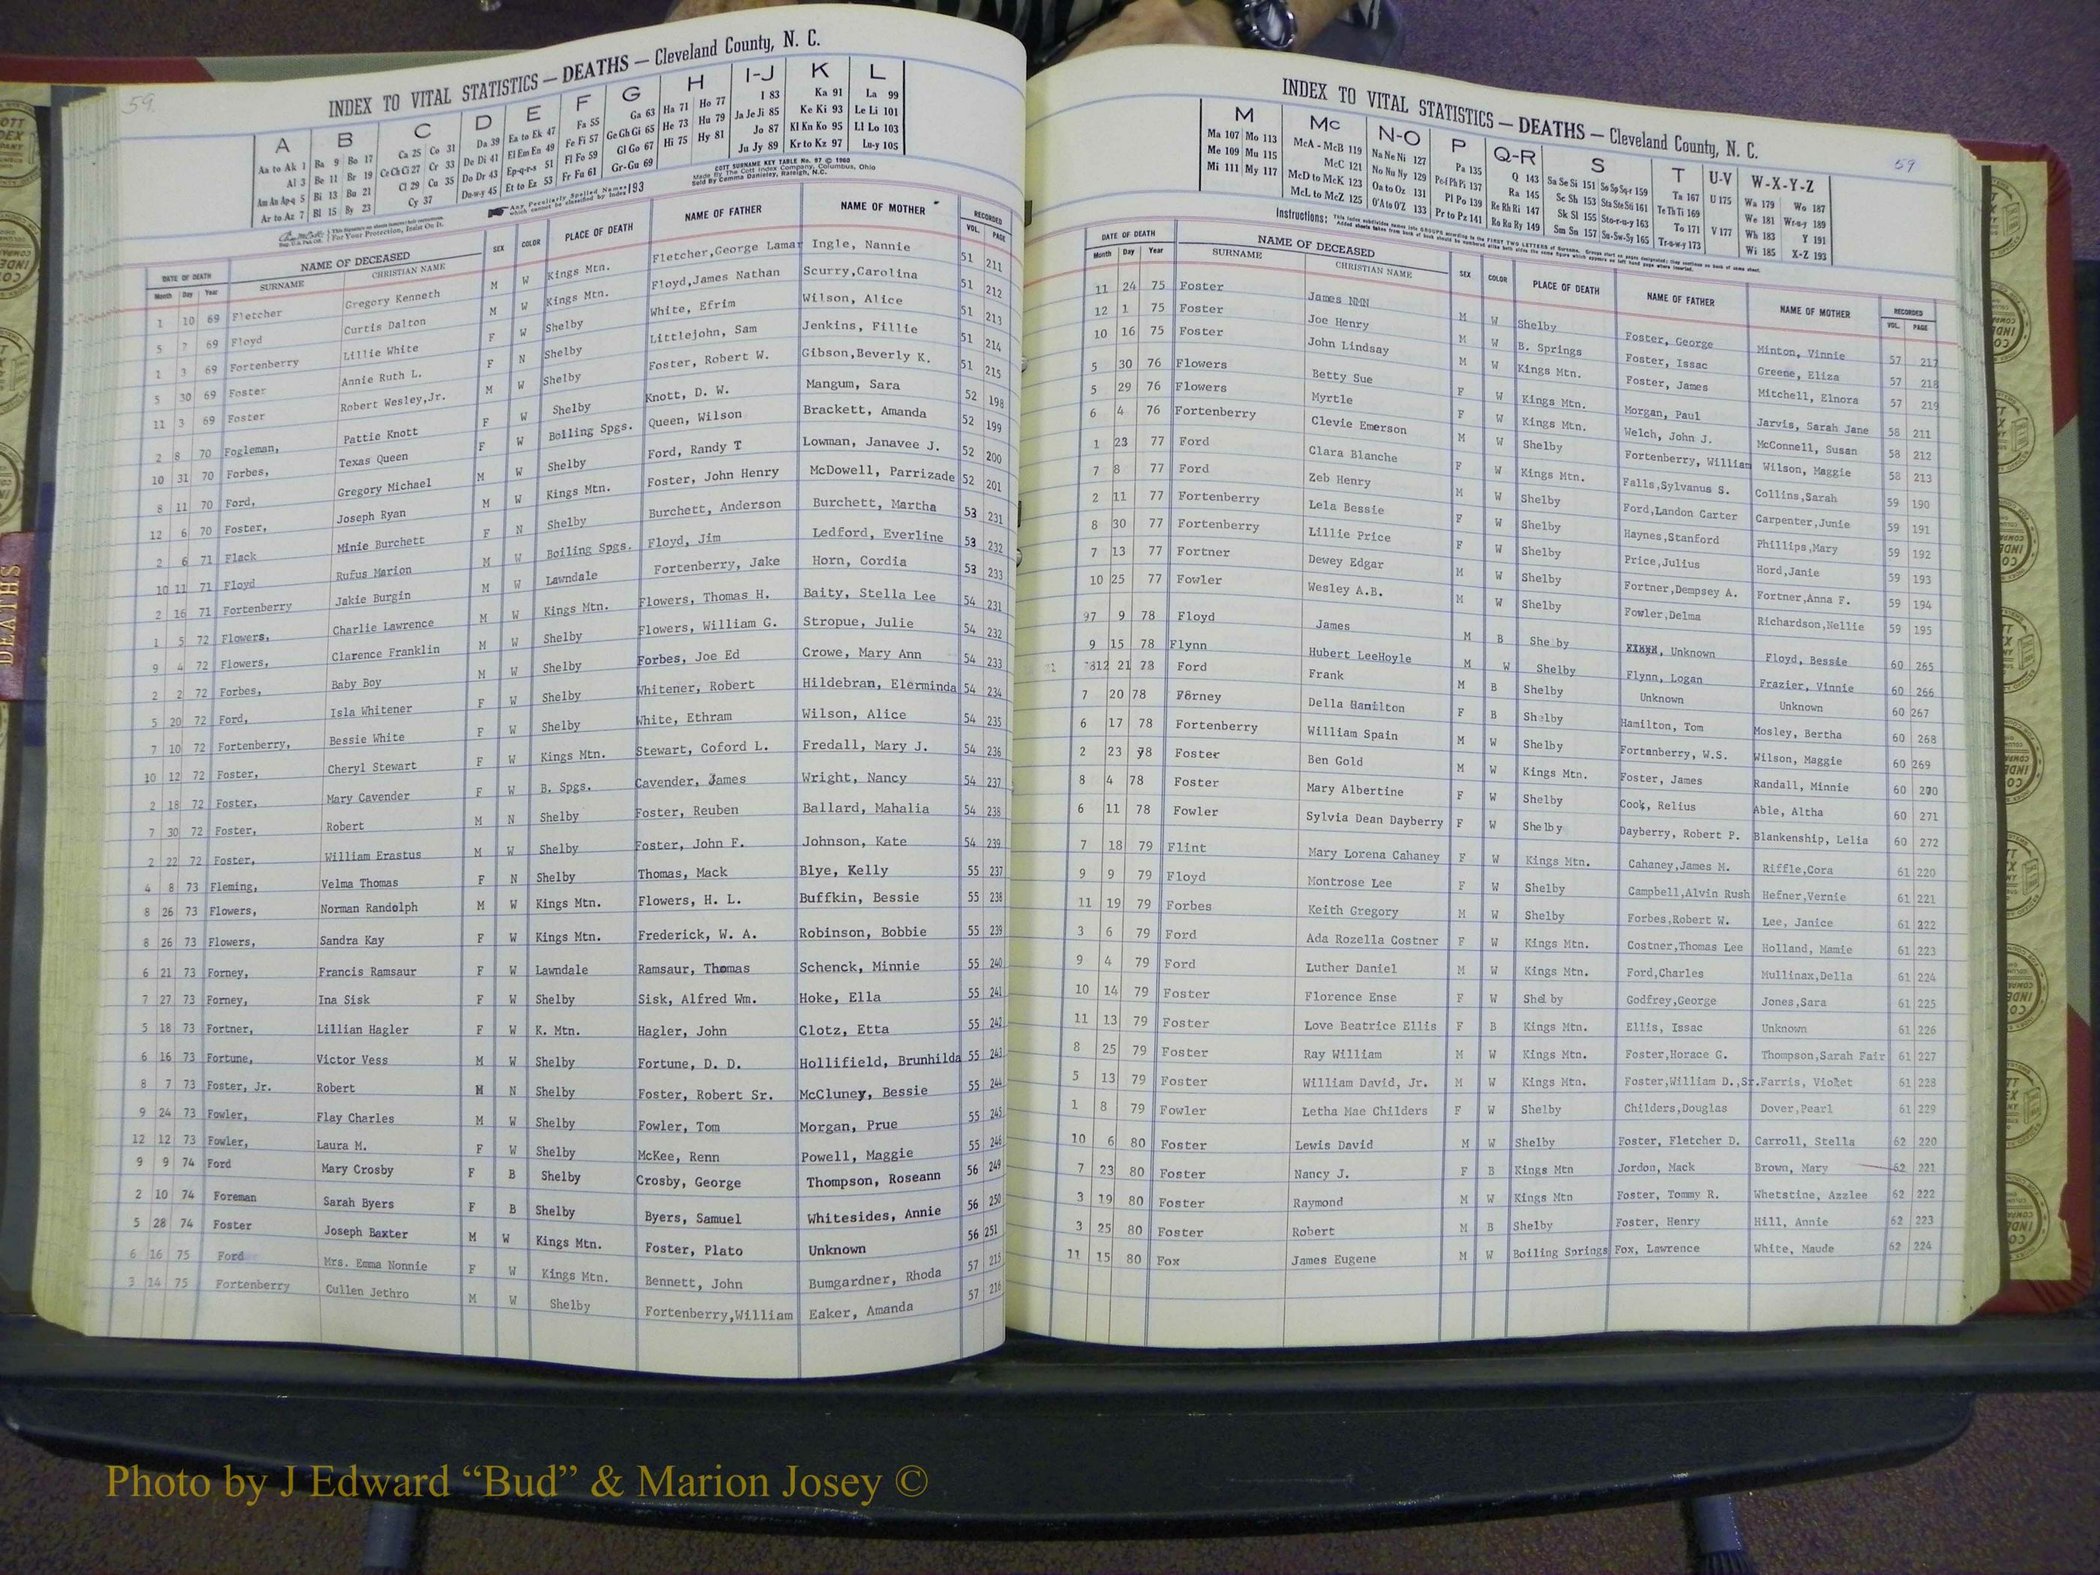 59.
INDEX TO VITAL STATISTICS — DEATHS — Cleveland County, N. C.
A B C D E F G H I-J K L
Aa to Ak 1 Ba 9 Bo 17 Ca 25 Co 31 Da 39 Ea to Ek 47 Fa 55 Ga 63 Ha 71 Ho 77 I 83 Ka 91 La 99
Al 3 Be 11 Br 19 Ce Ch Ci 27 Cr 33 De Di 41 El Em En 49 Fe Fi 57 Ge Gh Gi 65 He 73 Hu 79 Ja Je Ji 85 Ke Ki 93 Le Li 101
Am An Ap-q 5 Bi 13 Bu 21 Cl 29 Cu 35 Do Dr 43 Ep-q-r-s 51 Fl Fo 59 Gl Go 67 Hi 75 Hy 81 Jo 87 Kl Kn Ko 95 Ll Lo 103
Ar to Az 7 Bl 15 By 23 Cy 37 Du-w-y 45 Et to Ez 53 Fr Fu 61 Gr-Gu 69 Ju Jy 89 Kr to Kz 97 Lu-y 105
COTT SURNAME KEY TABLE No. 97 © 1960
Made By The Cott Index Company, Columbus, Ohio
For Your Protection, Insist On It.
Any Peculiarly Spelled Names which cannot be classified by Index 193
DATE OF DEATH NAME OF DECEASED SEX COLOR PLACE OF DEATH NAME OF FATHER NAME OF MOTHER RECORDED
Month Day Year SURNAME CHRISTIAN NAME VOL. PAGE
1 10 69 Fletcher Gregory Kenneth M W Kings Mtn. Fletcher,George Lamar Ingle, Nannie 51 211
5 7 69 Floyd Curtis Dalton M W Kings Mtn. Floyd,James Nathan Scurry,Carolina 51 212
1 3 69 Fortenberry Lillie White F W Shelby White, Efrim Wilson, Alice 51 213
5 30 69 Foster Annie Ruth L. F N Shelby Littlejohn, Sam Jenkins, Fillie 51 214
11 3 69 Foster Robert Wesley,Jr. M W Shelby Foster, Robert W. Gibson,Beverly K. 51 215
2 8 70 Fogleman, Pattie Knott F W Shelby Knott, D. W. Mangum, Sara 52 198
10 31 70 Forbes, Texas Queen F W Boiling Spgs. Queen, Wilson Brackett, Amanda 52 199
8 11 70 Ford, Gregory Michael M W Shelby Ford, Randy T Lowman, Janavee J. 52 200
12 6 70 Foster, Joseph Ryan M W Kings Mtn. Foster, John Henry McDowell, Parrizade 52 201
2 6 71 Flack Minie Burchett F N Shelby Burchett, Anderson Burchett, Martha 53 231
10 11 71 Floyd Rufus Marion M W Boiling Spgs. Floyd, Jim Ledford, Everline 53 232
2 16 71 Fortenberry Jakie Burgin M W Lawndale Fortenberry, Jake Horn, Cordia 53 233
1 5 72 Flowers, Charlie Lawrence M W Kings Mtn. Flowers, Thomas H. Baity, Stella Lee 54 231
9 4 72 Flowers, Clarence Franklin M W Shelby Flowers, William G. Stropue, Julie 54 232
2 2 72 Forbes, Baby Boy M W Shelby Forbes, Joe Ed Crowe, Mary Ann 54 233
5 20 72 Ford, Isla Whitener F W Shelby Whitener, Robert Hildebran, Elerminda 54 234
7 10 72 Fortenberry, Bessie White F W Shelby White, Ethram Wilson, Alice 54 235
10 12 72 Foster, Cheryl Stewart F W Kings Mtn. Stewart, Coford L. Fredall, Mary J. 54 236
2 18 72 Foster, Mary Cavender F W B. Spgs. Cavender, James Wright, Nancy 54 237
7 30 72 Foster, Robert M N Shelby Foster, Reuben Ballard, Mahalia 54 238
2 22 72 Foster, William Erastus M W Shelby Foster, John F. Johnson, Kate 54 239
4 8 73 Fleming, Velma Thomas F N Shelby Thomas, Mack Blye, Kelly 55 237
8 26 73 Flowers, Norman Randolph M W Kings Mtn. Flowers, H. L. Buffkin, Bessie 55 238
8 26 73 Flowers, Sandra Kay F W Kings Mtn. Frederick, W. A. Robinson, Bobbie 55 239
6 21 73 Forney, Francis Ramsaur F W Lawndale Ramsaur, Thomas Schenck, Minnie 55 240
7 27 73 Forney, Ina Sisk F W Shelby Sisk, Alfred Wm. Hoke, Ella 55 241
5 18 73 Fortner, Lillian Hagler F W K. Mtn. Hagler, John Clotz, Etta 55 242
6 16 73 Fortune, Victor Vess M W Shelby Fortune, D. D. Hollifield, Brunhilda 55 243
8 7 73 Foster, Jr. Robert M N Shelby Foster, Robert Sr. McCluney, Bessie 55 244
9 24 73 Fowler, Flay Charles M W Shelby Fowler, Tom Morgan, Prue 55 245
12 12 73 Fowler, Laura M. F W Shelby McKee, Renn Powell, Maggie 55 246
9 9 74 Ford Mary Crosby F B Shelby Crosby, George Thompson, Roseann 56 249
2 10 74 Foreman Sarah Byers F B Shelby Byers, Samuel Whitesides, Annie 56 250
5 28 74 Foster Joseph Baxter M W Kings Mtn. Foster, Plato Unknown 56 251
6 16 75 Ford Mrs. Emma Nonnie F W Kings Mtn. Bennett, John Bumgardner, Rhoda 57 215
3 14 75 Fortenberry Cullen Jethro M W Shelby Fortenberry,William Eaker, Amanda 57 216
59
INDEX TO VITAL STATISTICS — DEATHS — Cleveland County, N. C.
M Mc N-O P Q-R S T U-V W-X-Y-Z
Ma 107 Mo 113 McA - McB 119 Na Ne Ni 127 Pa 135 Q 143 Sa Se Si 151 So Sp Sq-r 159 Ta 167 U 175 Wa 179 Wo 187
Me 109 Mu 115 McC 121 No Nu Ny 129 Pe-f Ph Pi 137 Ra 145 Sc Sh 153 Sta Ste Sti 161 Te Th Ti 169 We 181 Wr-u-y 189
Mi 111 My 117 McD to McK 123 Oa to Oz 131 Pl Po 139 Re Rh Ri 147 Sk Sl 155 Sto-r-u-y 163 To 171 V 177 Wh 183 Y 191
McL to McZ 125 O'A to O'Z 133 Pr to Pz 141 Ro Ru Ry 149 Sm Sn 157 Su-Sw-Sy 165 Tr-u-w-y 173 Wi 185 X-Z 193
DATE OF DEATH NAME OF DECEASED SEX COLOR PLACE OF DEATH NAME OF FATHER NAME OF MOTHER RECORDED
Month Day Year SURNAME CHRISTIAN NAME VOL. PAGE
11 24 75 Foster James NMN M W Shelby Foster, George Minton, Vinnie 57 217
12 1 75 Foster Joe Henry M W B. Springs Foster, Issac Greene, Eliza 57 218
10 16 75 Foster John Lindsay M W Kings Mtn. Foster, James Mitchell, Elnora 57 219
5 30 76 Flowers Betty Sue F W Kings Mtn. Morgan, Paul Jarvis, Sarah Jane 58 211
5 29 76 Flowers Myrtle F W Kings Mtn. Welch, John J. McConnell, Susan 58 212
6 4 76 Fortenberry Clevie Emerson M W Shelby Fortenberry, William Wilson, Maggie 58 213
1 23 77 Ford Clara Blanche F W Kings Mtn. Falls,Sylvanus S. Collins,Sarah 59 190
7 8 77 Ford Zeb Henry M W Shelby Ford,Landon Carter Carpenter,Junie 59 191
2 11 77 Fortenberry Lela Bessie F W Shelby Haynes,Stanford Phillips,Mary 59 192
8 30 77 Fortenberry Lillie Price F W Shelby Price,Julius Hord,Janie 59 193
7 13 77 Fortner Dewey Edgar M W Shelby Fortner,Dempsey A. Fortner,Anna F. 59 194
10 25 77 Fowler Wesley A.B. M W Shelby Fowler,Delma Richardson,Nellie 59 195
97 9 78 Floyd James M B She by Unknown Floyd, Bessie 60 265
9 15 78 Flynn Hubert LeeHoyle M W Shelby Flynn, Logan Frazier, Vinnie 60 266
12 21 78 Ford Frank M B Shelby Unknown Unknown 60 267
7 20 78 Forney Della Hamilton F B Shelby Hamilton, Tom Mosley, Bertha 60 268
6 17 78 Fortenberry William Spain M W Shelby Fortenberry, W.S. Wilson, Maggie 60 269
2 23 78 Foster Ben Gold M W Kings Mtn. Foster, James Randall, Minnie 60 270
8 4 78 Foster Mary Albertine F W Shelby Cook, Relius Able, Altha 60 271
6 11 78 Fowler Sylvia Dean Dayberry F W Shelby Dayberry, Robert P. Blankenship, Lelia 60 272
7 18 79 Flint Mary Lorena Cahaney F W Kings Mtn. Cahaney,James M. Riffle,Cora 61 220
9 9 79 Floyd Montrose Lee F W Shelby Campbell,Alvin Rush Hefner,Vernie 61 221
11 19 79 Forbes Keith Gregory M W Shelby Forbes,Robert W. Lee, Janice 61 222
3 6 79 Ford Ada Rozella Costner F W Kings Mtn. Costner,Thomas Lee Holland, Mamie 61 223
9 4 79 Ford Luther Daniel M W Kings Mtn. Ford,Charles Mullinax,Della 61 224
10 14 79 Foster Florence Ense F W Shelby Godfrey,George Jones,Sara 61 225
11 13 79 Foster Love Beatrice Ellis F B Kings Mtn. Ellis, Issac Unknown 61 226
8 25 79 Foster Ray William M W Kings Mtn. Foster,Horace G. Thompson,Sarah Fair 61 227
5 13 79 Foster William David, Jr. M W Kings Mtn. Foster,William D.,Sr. Farris, Violet 61 228
1 8 79 Fowler Letha Mae Childers F W Shelby Childers,Douglas Dover,Pearl 61 229
10 6 80 Foster Lewis David M W Shelby Foster, Fletcher D. Carroll, Stella 62 220
7 23 80 Foster Nancy J. F B Kings Mtn Jordon, Mack Brown, Mary 62 221
3 19 80 Foster Raymond M W Kings Mtn Foster, Tommy R. Whetstine, Azzlee 62 222
3 25 80 Foster Robert M B Shelby Foster, Henry Hill, Annie 62 223
11 15 80 Fox James Eugene M W Boiling Springs Fox, Lawrence White, Maude 62 224
DEATHS
Photo by J Edward “Bud” & Marion Josey ©